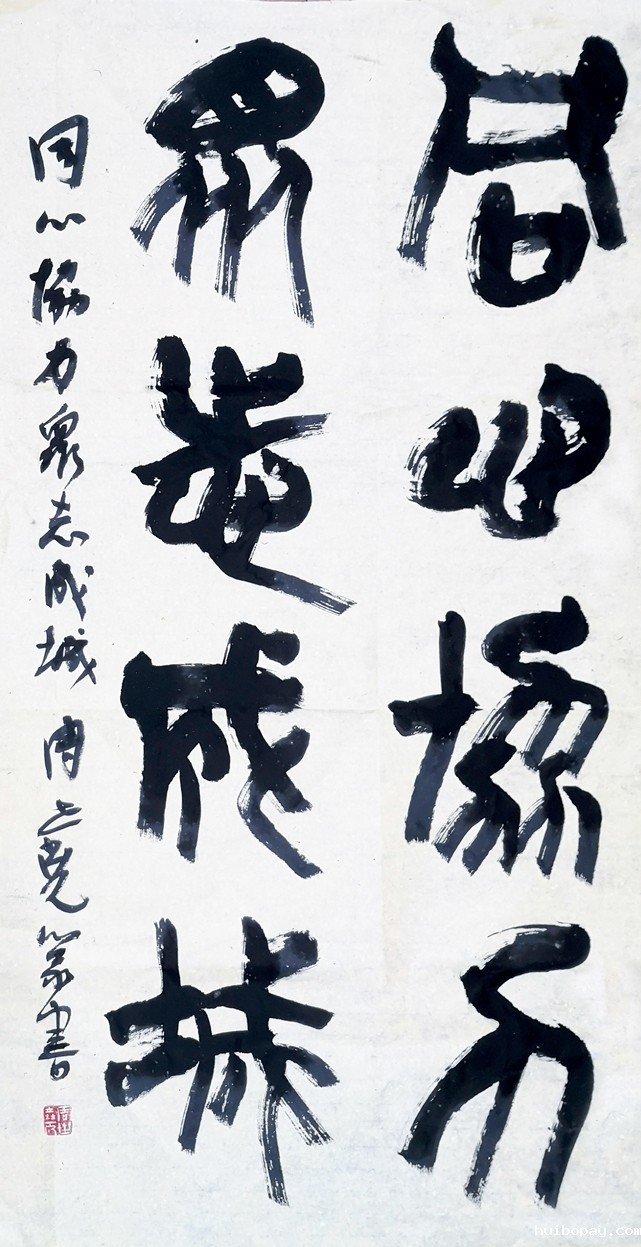 同心協力
眾志成城
同心協力眾志成城 篆書
huibopay.com